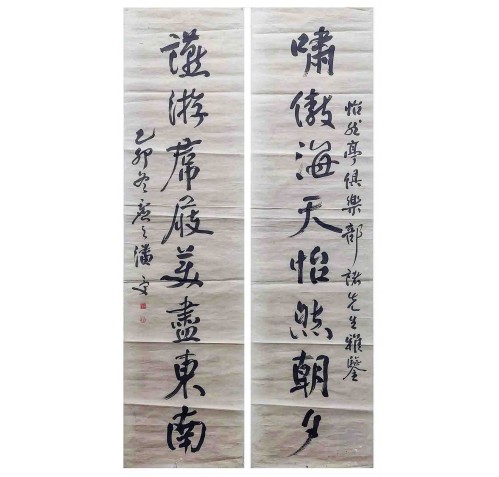 怡然亭俱樂部諸先生雅鑒
啸傲海天怡然朝夕
讌游席屐美盡東南
乙卯冬